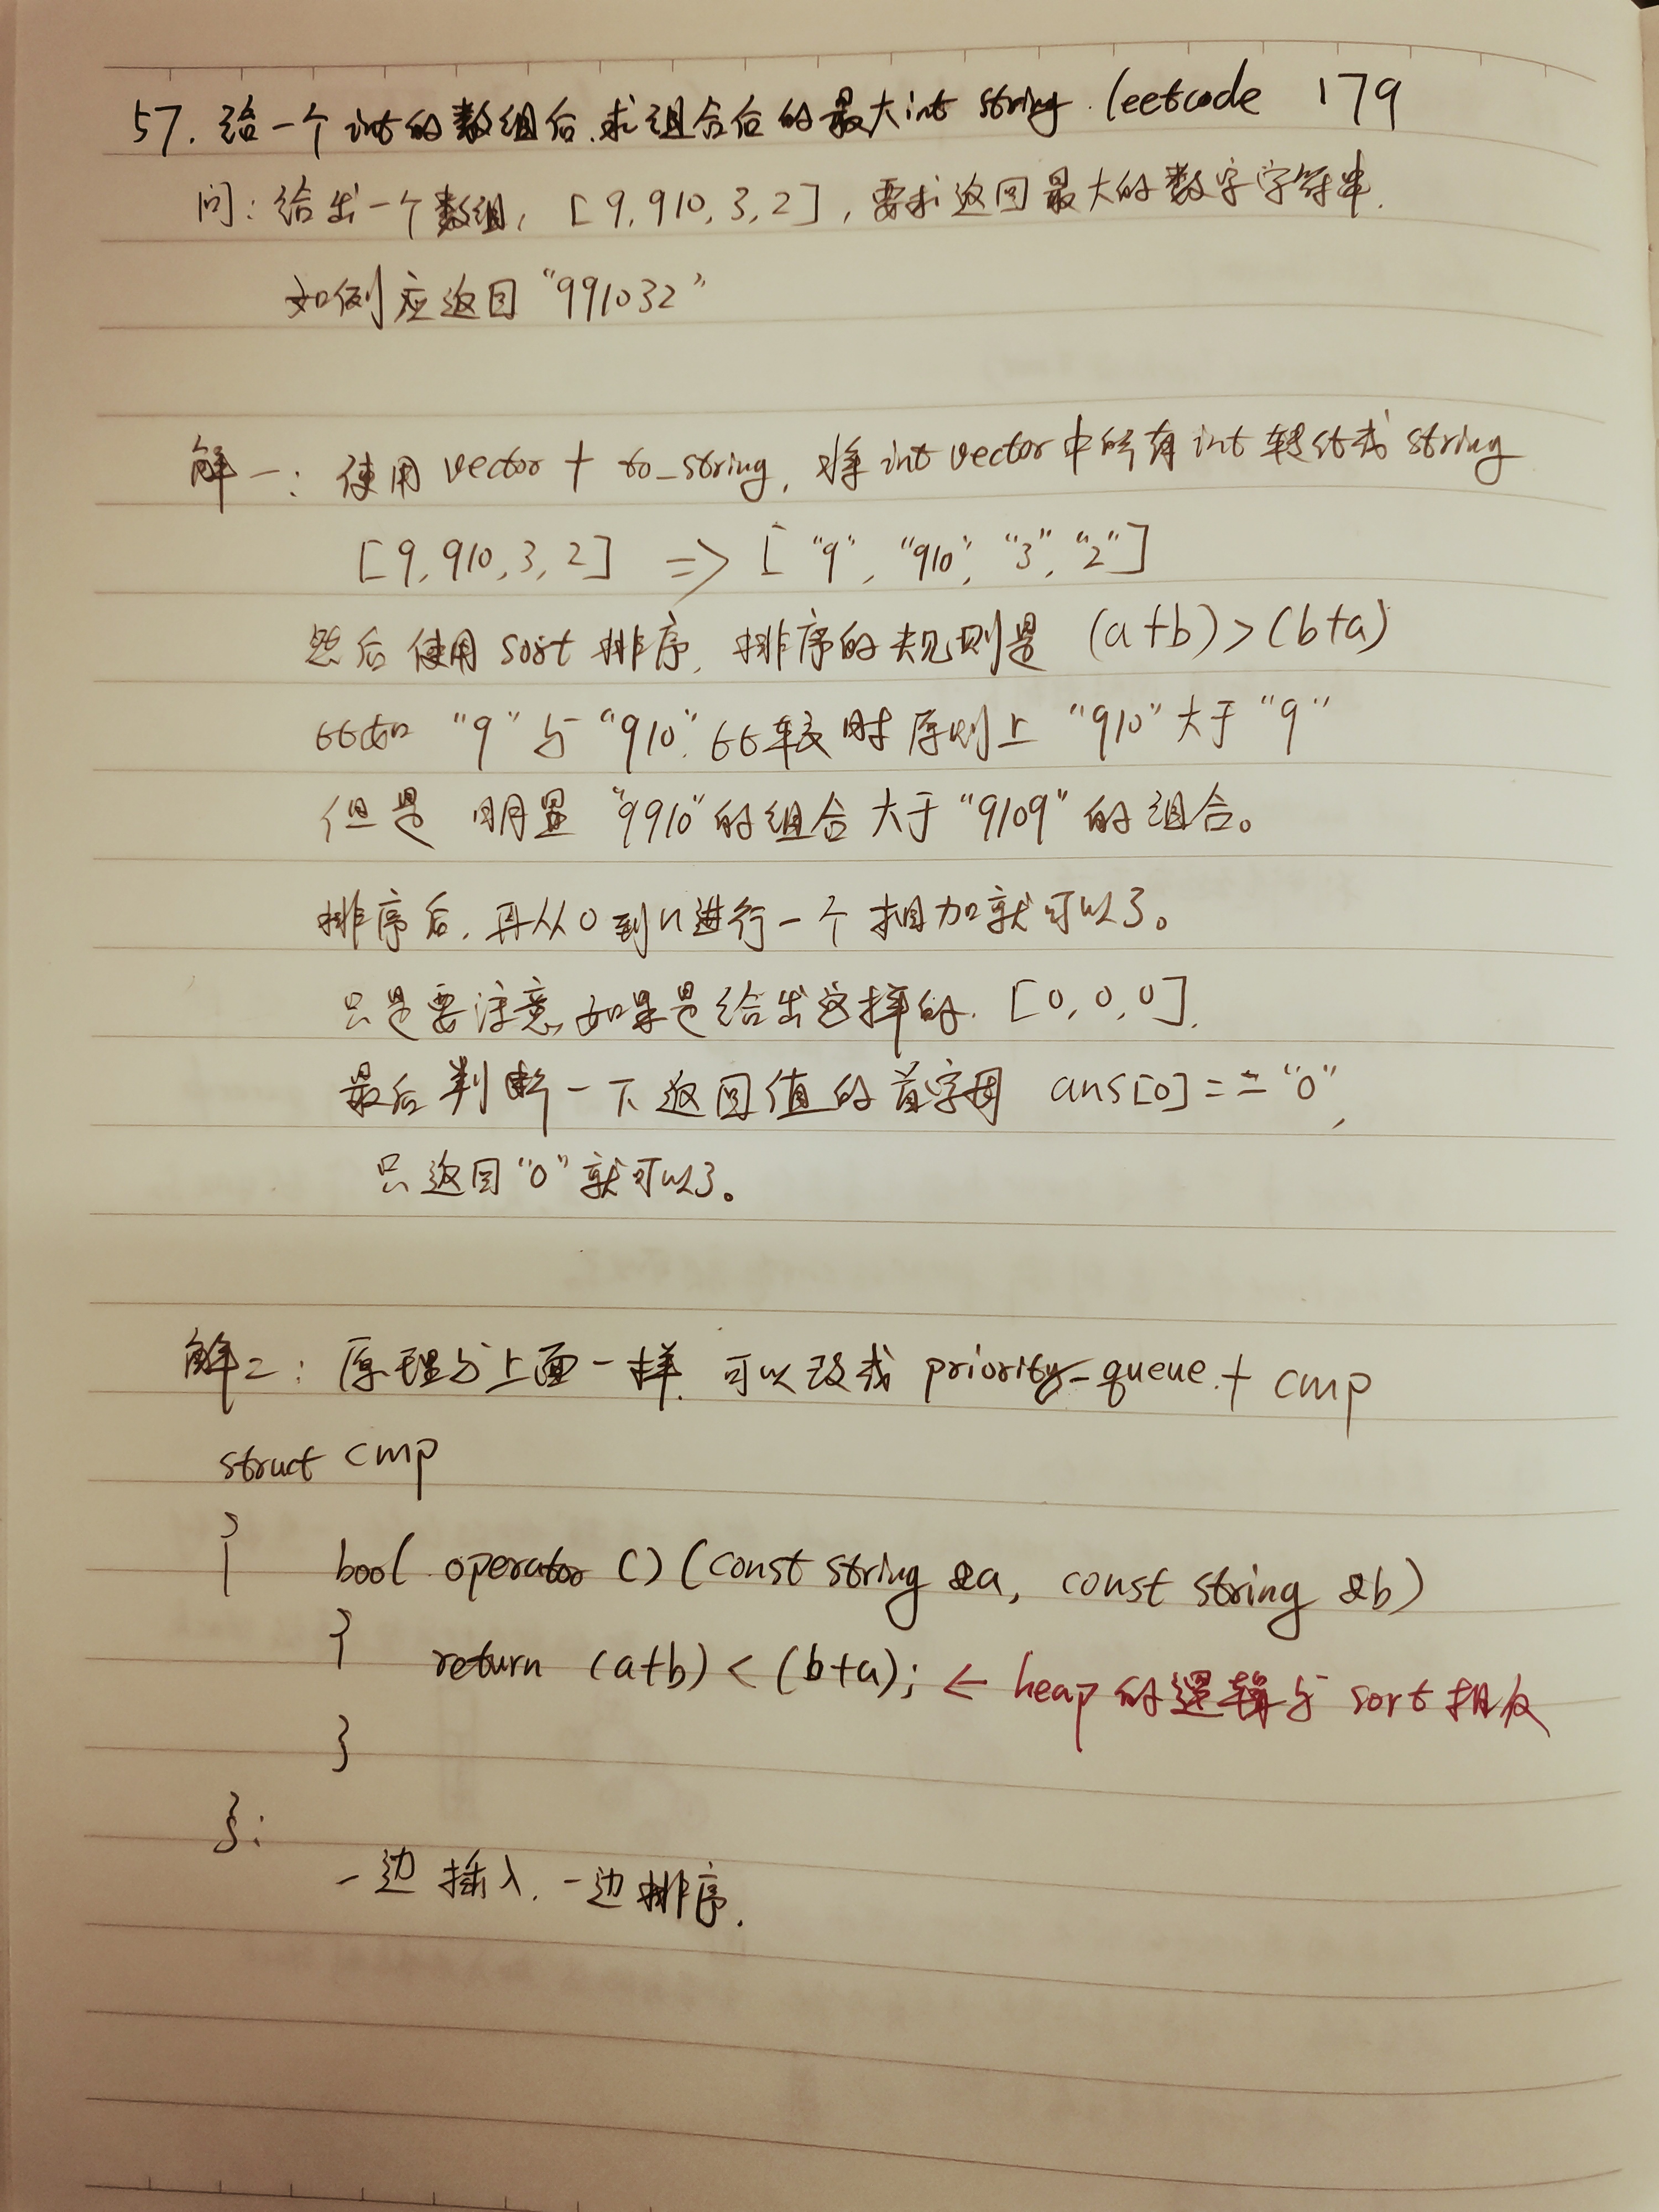 57. 给一个int的数组后,求组合后的最大int string. leetcode 179
问: 给出一个数组, [9,910,3,2], 要求返回最大的数字字符串.
如例应返回"991032"
解一: 使用 vector + to_string, 将int vector中所有int转化成string
[9,910,3,2] => ["9","910","3","2"]
然后使用sort排序, 排序的规则是 (a+b)>(b+a)
比如 "9"与"910"比较时原则上 "910"大于"9"
但是 明显 "9910"的组合大于"9109"的组合。
排序后, 再从0到n进行一个相加就可以了。
只是要注意,如果是给出这样的. [0,0,0],
最后判断一下返回值的首字母 ans[0]=="0",
只返回"0"就可以了。
解二: 原理与上面一样. 可以改成 priority_queue + cmp
struct cmp
{ bool operator ()(const string &a, const string &b)
{ return (a+b)<(b+a); ← heap的逻辑与sort相反
}
};
一边插入, 一边排序.